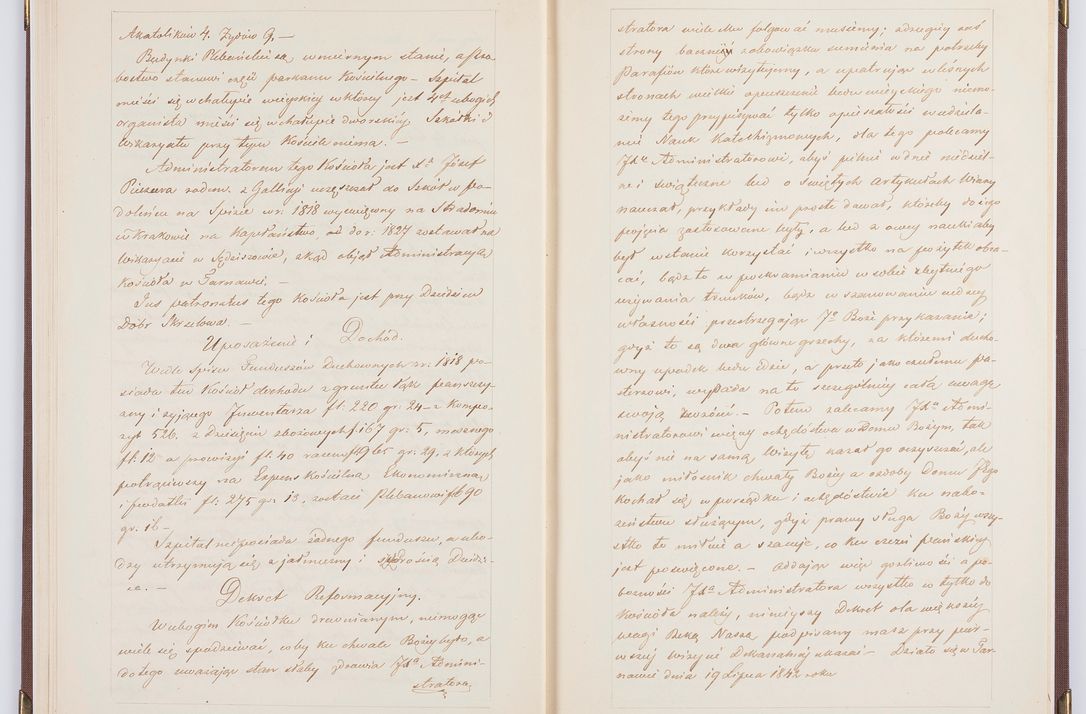 Akatolików 4. Żydów 9. –
Budynki Plebańskie są w miernym stanie, a ftza
bostwo stanowi część parkanu Kościelnego – Szpital
mieści się w chałupie wiejskiej w któréj jest 4ch ubogich
organista mieści się w chałupie dworskiéj, Szkółki i
Wikaryatu przy tym Kościele niema. –
Administratorem tego Kościoła jest X. Józef
Pieszura rodem z Gallicyi uczęszczał do Szkół w Po-
dolińcu na Spiżu w r: 1818 wyświęcony na Stradomiu
w Krakowie na Kapłaństwo, od do r: 1827 zostawał na
Wikaryacie w Sędziszowie, skąd objął Administracyą
Kościoła w Tarnawie. –
Jus patronatus tego Kościoła jest przy Dziedzicu
Dóbr Skrzelowa. –
Uposażenie i Dochód.
Wedle Spisu Funduszów Duchownych w r: 1818 po-
siada ten Kościół dochodu z gruntu łąk pańszczy-
zny i żyjącego Inwentarza fl. 220 gr: 24 – z Kompo-
zyt 526. z Dziesięcin zbożowych fl 167 gr: 5, mesznego
fl. 12 a prowizyi fl. 40 razem fl 965 gr. 29. z których
potrąciwszy na Expens Kościelna Ekonomiczna
i podatki fl. 275 gr: 13, zostaje Plebanowi fl 690
gr. 16 –
Szpital nie posiada żadnego funduszu, a ubo-
dzy utrzymują się z jałmużny i szczodrością Dziedzi-
ca. –
Dekret Reformacyjny.
W ubogim Kościółku drewnianym, niemogąc
wiele się spodziewać, coby ku chwale Bożej było, a
do tego uważając stan słaby zdrowia JXa Admini-
stratora
stratora wiele mu folgować musiemy; zdrugiéj zaś
strony baczni z obowiązku sumienia na potrzeby
Parafiów które wizytujemy, a upatrując w licznych
stronach wielkie opuszczenie ludu wiejskiego niemo-
żemy tego przypisywać tylko opieszałości w udziela-
niu Nauk Katechizmowych, dla tego polecamy
JXu Administratorowi, abyś pilnie w dnie niedziel-
ne i świąteczne lud o świętych Artykułach Wiary
nauczał, przykłady im proste dawał, któreby do jego
pojęcia zastosowane były, a lud z owey nauki aby
był w stanie korzystać i wszystko na pożytek obra-
cać, bądź to w poskramianiu w sobie zbytniego
używania trunków, bądź w szanowaniu cudzey
własności przestrzegając 7o Boże przykazanie;
gdyż to są dwa główne grzechy, za któremi ducho-
wny upadek ludu idzie, a przeto jako czułemu pa-
sterzowi, wypada na to szczególniey całą uwagę
swoją zwrócić. – Potem zalecamy JXu Admi-
nistratorowi więcey ochędóstwa w Domu Bożym, tak
abyś nie na samą Wizytę kazał go oczyszczać, ale
jako miłośnik chwały Bożéy a ozdoby Domu Jego
kochał się w porządku i ochędóstwie ku nabo-
żeństwu służącym, gdyż prawy sługa Boży wszy-
stko to miłuie a szanuje, co ku czci Pańskiéy
jest poświęcone. – Oddając więc gorliwości a po-
bożności JXa Administratora wszystko w tytko do
Kościoła należy, niniejszy Dekret dla większéy
wagi Ręką Naszą podpisany masz przy pier-
wszéy wizycie Dekanalnéj okazać – Działo się w Tar-
nawie dnia 19 Lipca 1842 roku